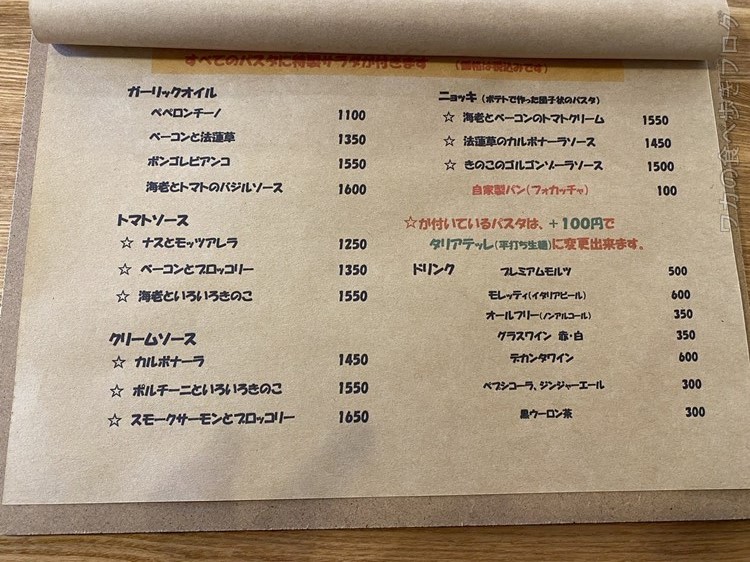 すべてのパスタに特製サラダが付きます (価格は税込みです)
ガーリックオイル
ペペロンチーノ 1100
ベーコンと法蓮草 1350
ボンゴレビアンコ 1550
海老とトマトのバジルソース 1600
トマトソース
☆ ナスとモッツアレラ 1250
☆ ベーコンとブロッコリー 1350
☆ 海老といろいろきのこ 1550
クリームソース
☆ カルボナーラ 1450
☆ ポルチーニといろいろきのこ 1550
☆ スモークサーモンとブロッコリー 1650
ニョッキ (ポテトで作った団子状のパスタ)
☆ 海老とベーコンのトマトクリーム 1550
☆ 法蓮草のカルボナーラソース 1450
☆ きのこのゴルゴンゾーラソース 1500
自家製パン(フォカッチャ) 100
☆が付いているパスタは、+100円で
タリアテッレ(平打ち生麺)に変更出来ます。
ドリンク
プレミアムモルツ 500
モレッティ(イタリアビール) 600
オールフリー(ノンアルコール) 350
グラスワイン 赤・白 350
デカンタワイン 600
ペプシコーラ、ジンジャーエール 300
黒ウーロン茶 300
ロカの食べ歩きブログ